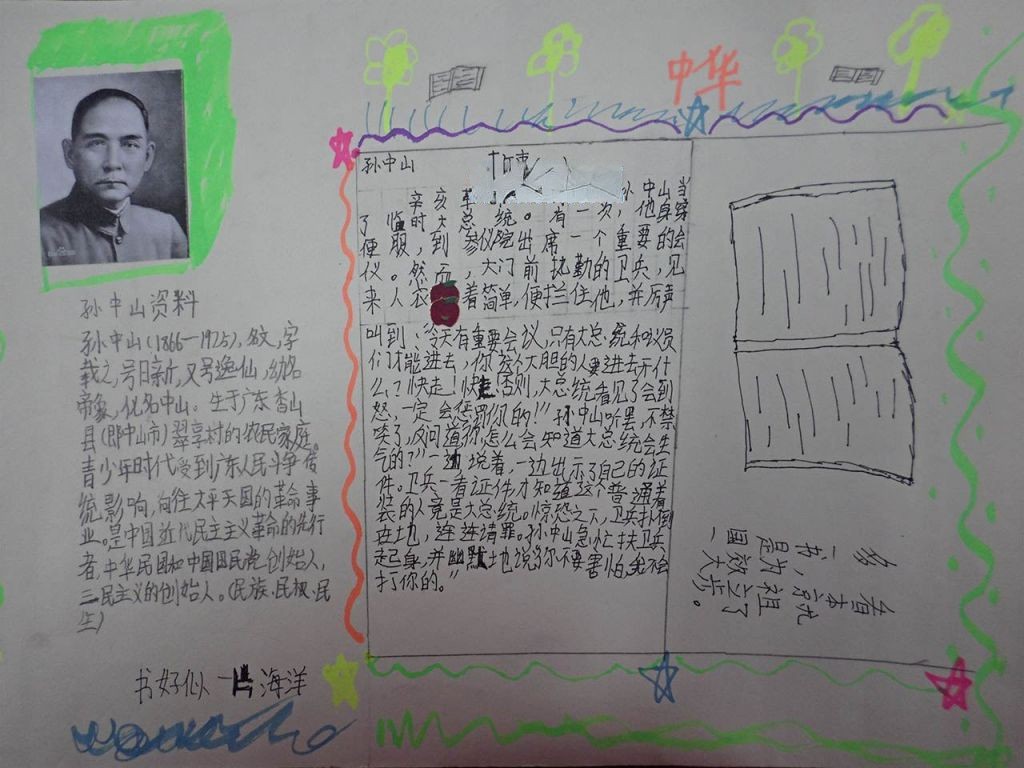 中华
孙中山资料
孙中山(1866—1925),名文,字
载之,号日新,又号逸仙,幼名
帝象,化名中山。生于广东香山
县(即中山市)翠亨村的农民家庭。
青少年时代受到广东人民斗争传
统影响,向往太平天国的革命事
业。是中国近代民主主义革命的先行
者,中华民国和中国国民党创始人,
三民主义的创始人。(民族、民权、民
生)
书好似一片海洋
孙中山
辛亥 孙中山当
了临时大总统。有一次,他身穿
便服,到参议院出席一个重要的会
仪。然而,大门前执勤的卫兵,见
来人衣着简单,便拦住他,并厉声
叫到:“今天有重要会议,只有大总统和议员
们才能进去,你这个大胆的人要进去干什
么?快走!快走!否则,大总统看见了会到
怒,一定会惩罚你的!”孙中山听罢,不禁
笑了,反问道“你怎么会知道大总统会生
气的?”一边说着,一边出示了自己的证
件。卫兵一看证件才知道这个普通着
装的人竟是大总统。惊恐之下,卫兵扑倒
在地,连连请罪。孙中山急忙扶卫兵
起身,并幽默地说:“你不要害怕,我不会
打你的。”